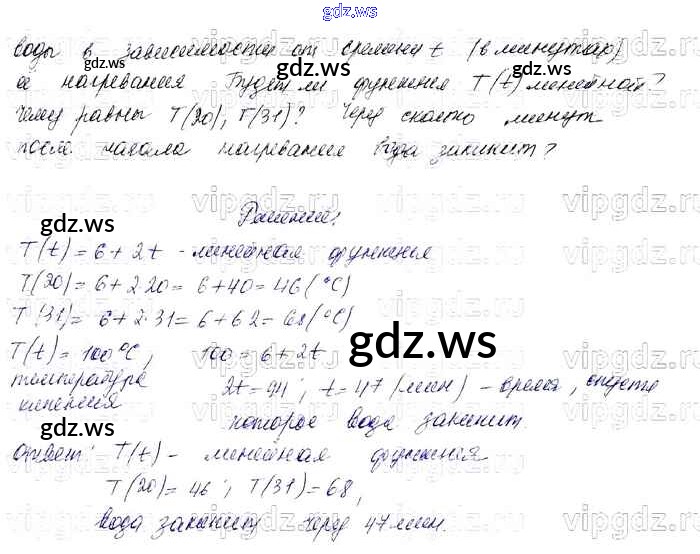 gdz.ws
воды в зависимости от времени t (в минутах)
её нагревания Будет ли функция T(t) линейной?
Чему равны T(20), T(31)? Через сколько минут
после начала нагревания вода закипит?
Решение:
T(t) = 6 + 2t - линейная функция
T(20) = 6 + 2·20 = 6 + 40 = 46 (°C)
T(31) = 6 + 2·31 = 6 + 62 = 68 (°C)
T(t) = 100°C, 100 = 6 + 2t
температура 2t = 94; t = 47 (мин) - время, спустя
кипения которое вода закипит.
Ответ: T(t) - линейная функция
T(20) = 46; T(31) = 68,
вода закипит через 47 мин.
gdz.ws
gdz.ws
gdz.ws
gdz.ws
gdz.ws
gdz.ws
gdz.ws
gdz.ws
gdz.ws
vipgdz.ru